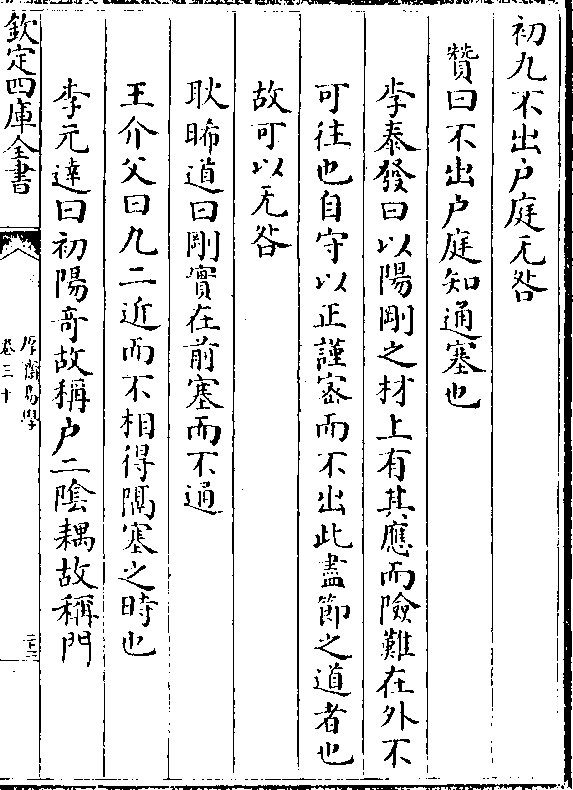 初九不出户庭无咎
贊曰不出户庭知通塞也
李泰發曰以陽剛之材上有其應而險難在外不
可往也自守以正謹宻而不出此盡節之道者也
故可以无咎
耿睎道曰剛實在前塞而不通
王介父曰九二近而不相得隔塞之時也
李元達曰初陽竒故稱户二陰耦故稱門
欽定四庫全書
厚齋易學
卷三十